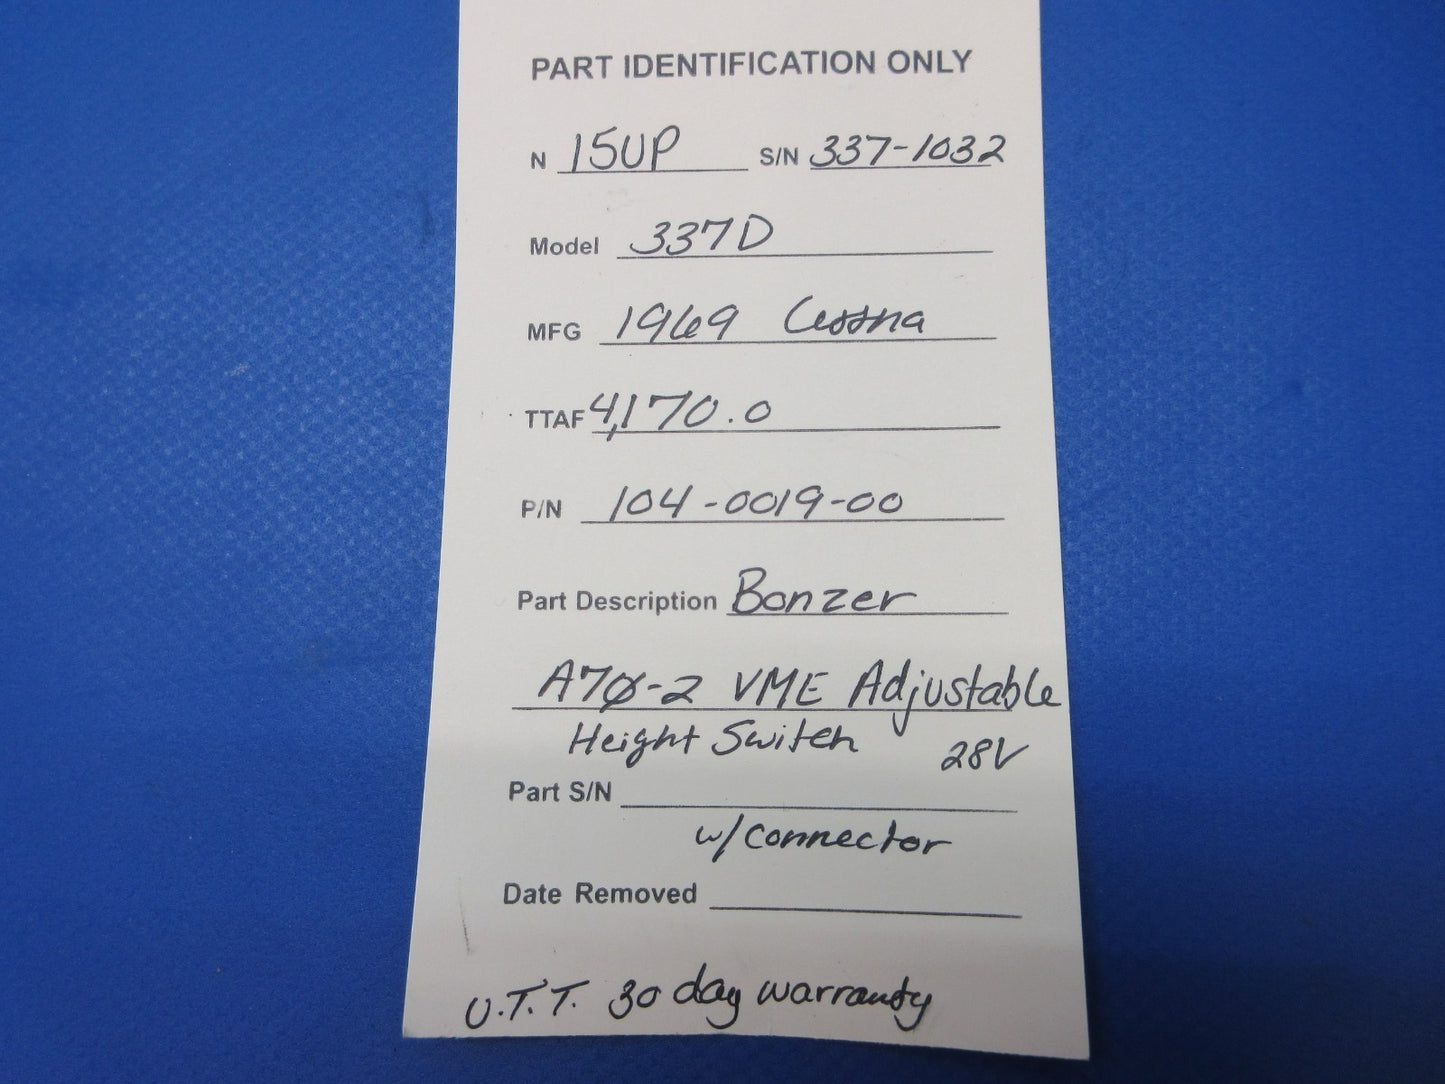 PART IDENTIFICATION ONLY
N 15UP S/N 337-1032
Model 337D
MFG 1969 Cessna
TTAF 4,170.0
P/N 104-0019-00
Part Description Bonzer
A7Ø-2 VME Adjustable
Height Switch 28V
Part S/N
w/connector
Date Removed
U.T.T. 30 day warranty